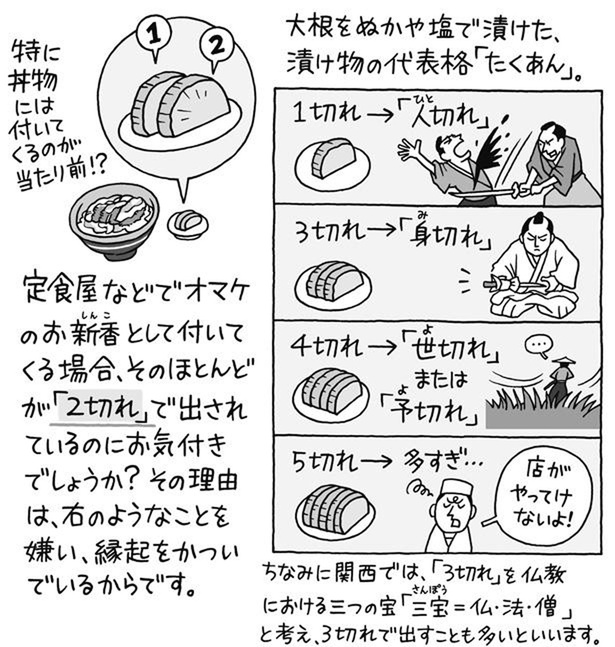 特に
丼物
には
付いて
くるのが
当たり前!?
1
2
定食屋などでオマケ
のお新香として付いて
くる場合、そのほとんど
が「2切れ」で出され
ているのにお気付き
でしょうか?その理由
は、右のようなことを
嫌い、縁起をかつい
でいるからです。
しんこ
大根をぬかや塩で漬けた、
漬け物の代表格「たくあん」。
1切れ→「人切れ」
ひと
3切れ→「身切れ」
み
4切れ→「世切れ」
よ
または
「予切れ」
よ
…
5切れ→多すぎ…
店が
やってけ
ないよ!
ちなみに関西では、「3切れ」を仏教
における三つの宝「三宝=仏・法・僧」
さんぽう
と考え、3切れで出すことも多いといいます。